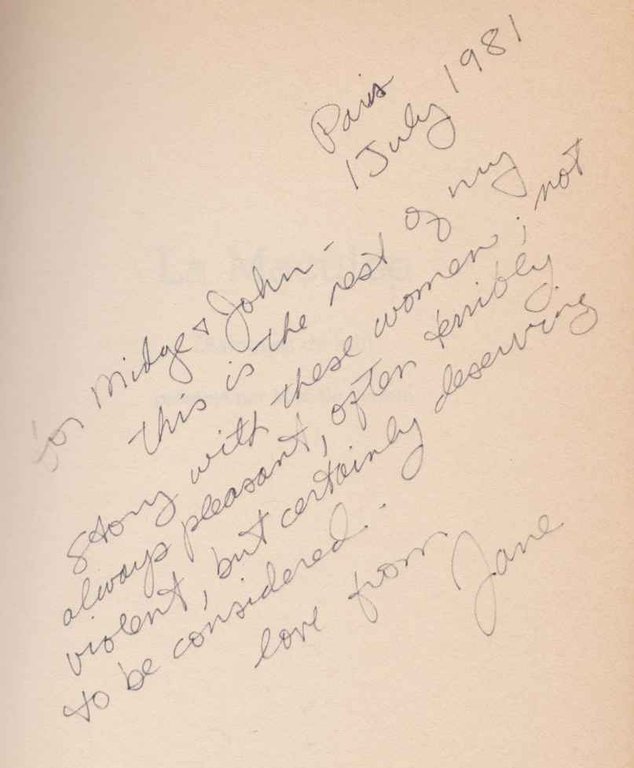 Paris
1 July 1981
for Midge & John -
this is the rest of my
story with these women; not
always pleasant, often terribly
violent, but certainly deserving
to be considered.
love from
Jane